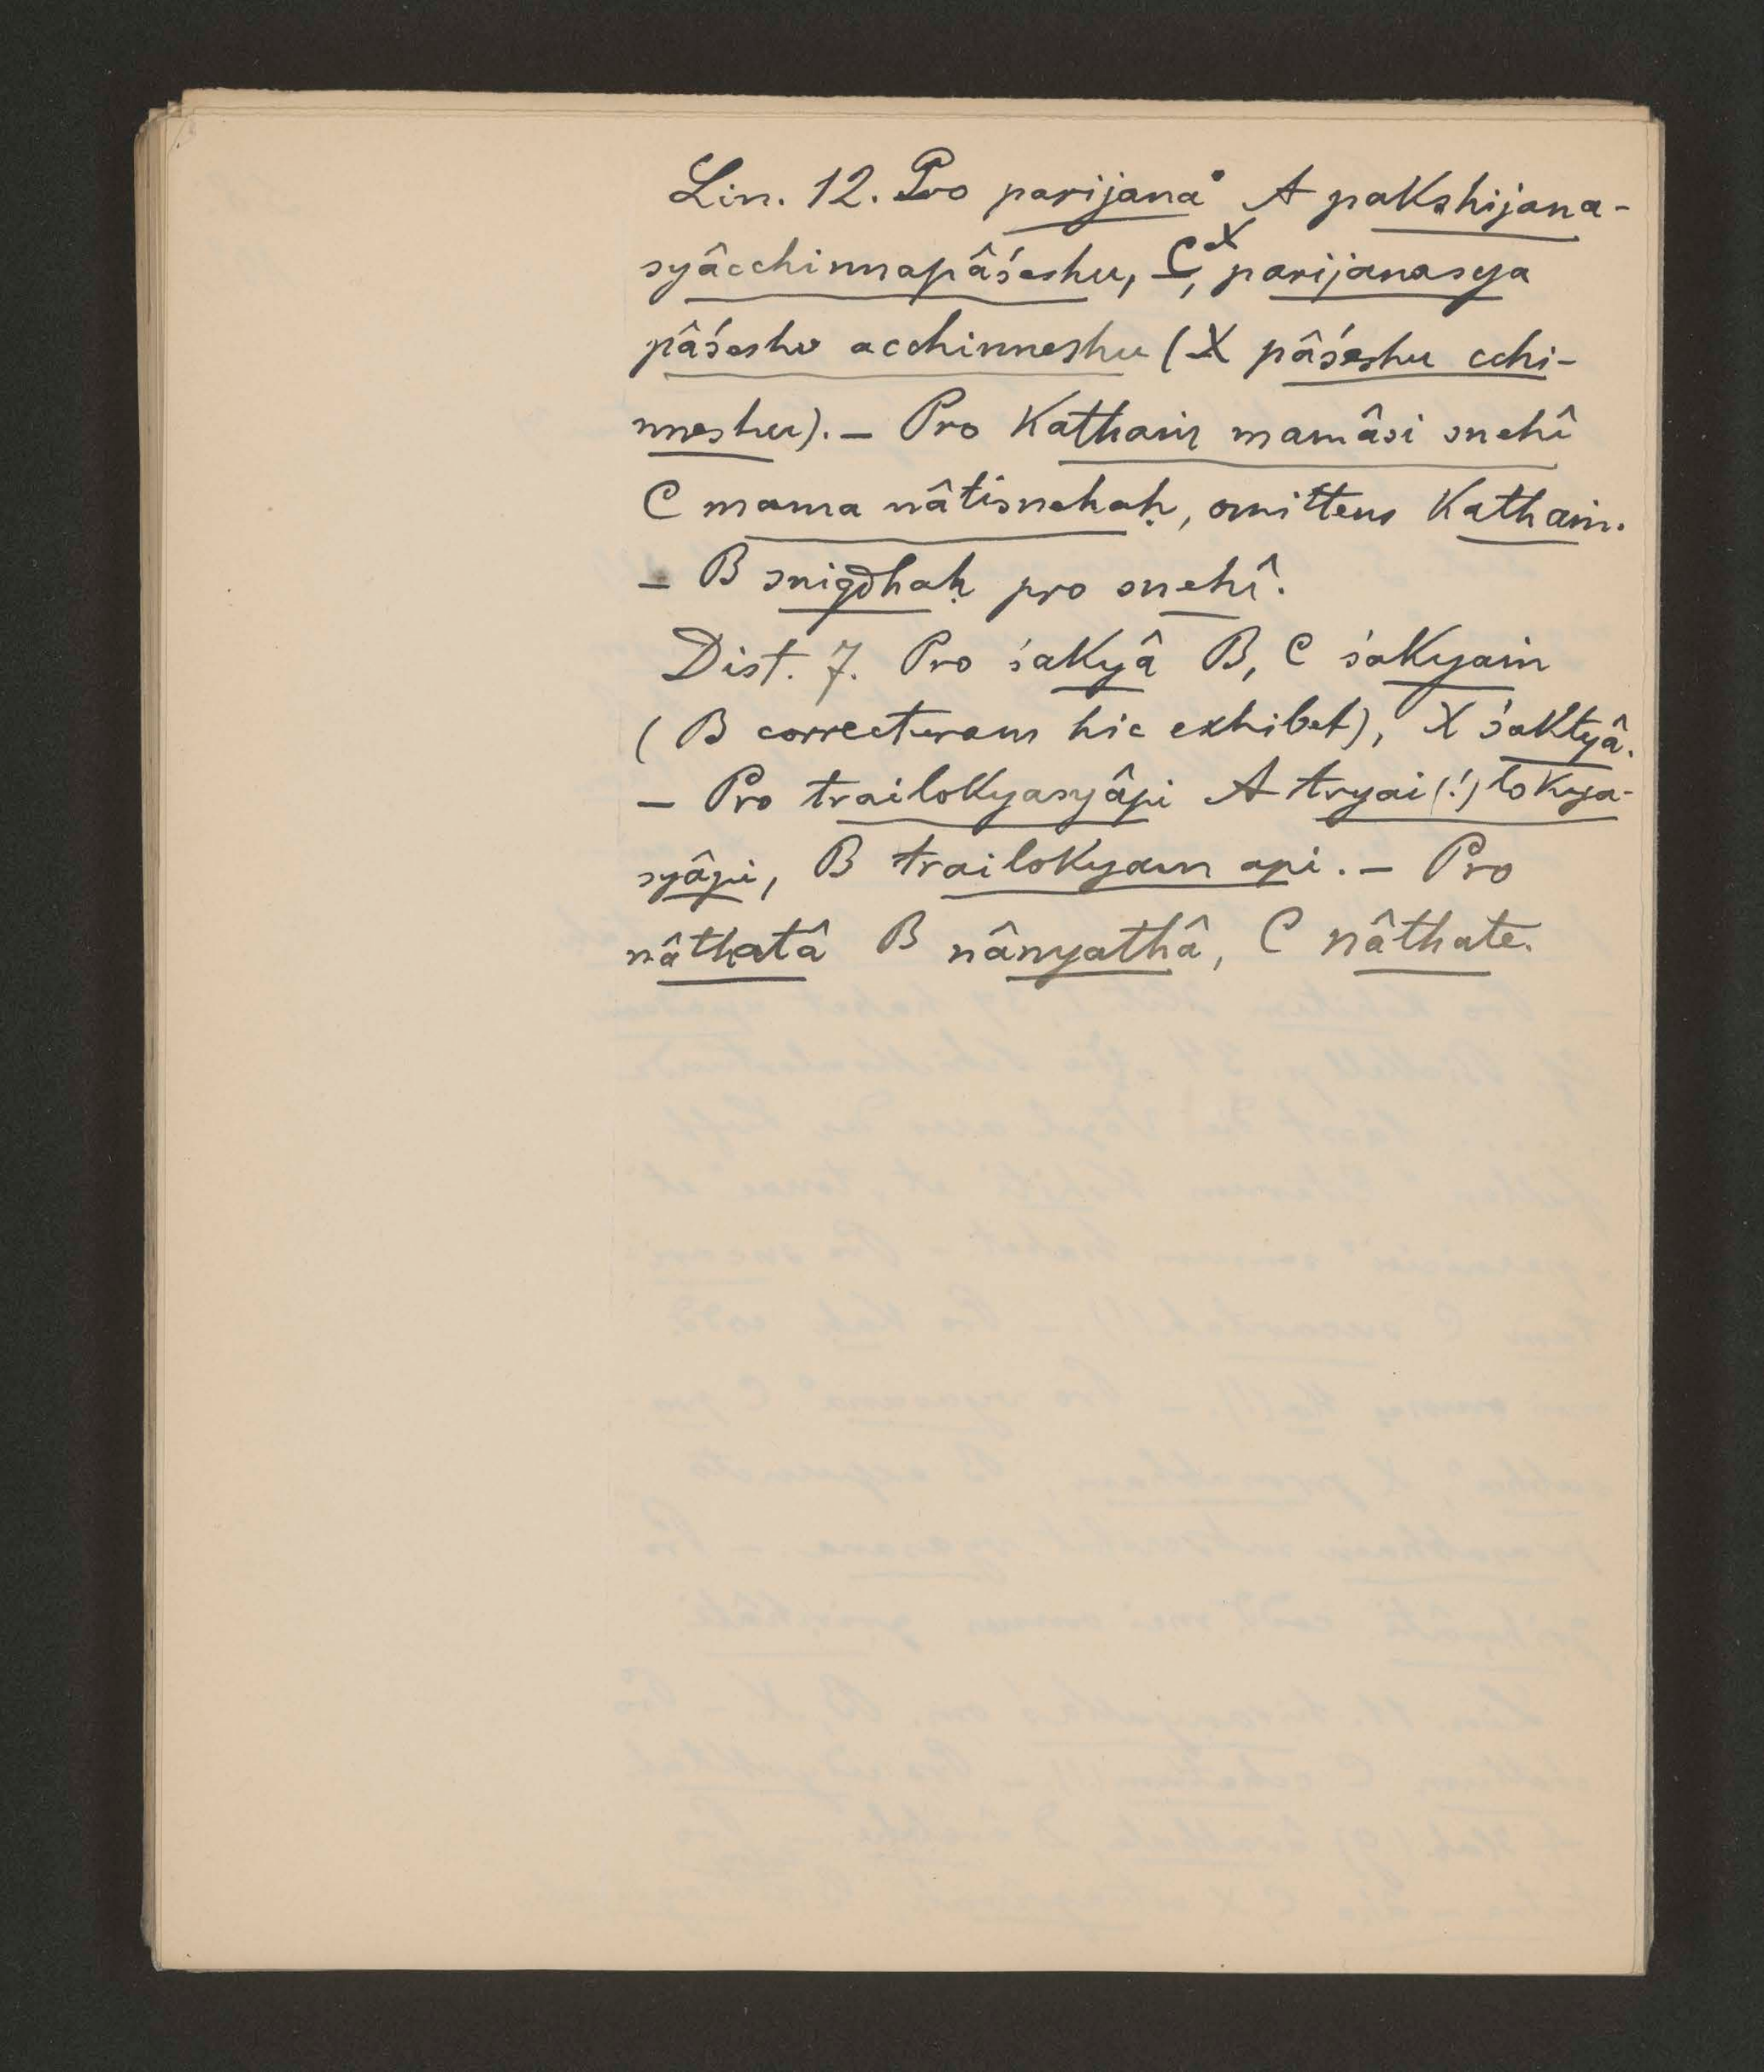 Lin. 12. Pro parijana° A pakshijana-
syâcchinnapâśeshu, C, X parijanasya
pâśeshu acchinneshu (X pâśeshu cchi-
nneshu). – Pro Kathaṁ mamâsi snehî
C mama nâtisnehaḥ, omittens Kathaṁ.
– B snigdhaḥ pro snehî.
Dist. 7. Pro śakyâ B, C śakyaṁ
(B correcturam hic exhibet), X śaktyâ.
– Pro trailokyasyâpi A tryai(!)lokya-
syâpi, B trailokyam api. – Pro
nâthatâ B nânyathâ, C nâthate.